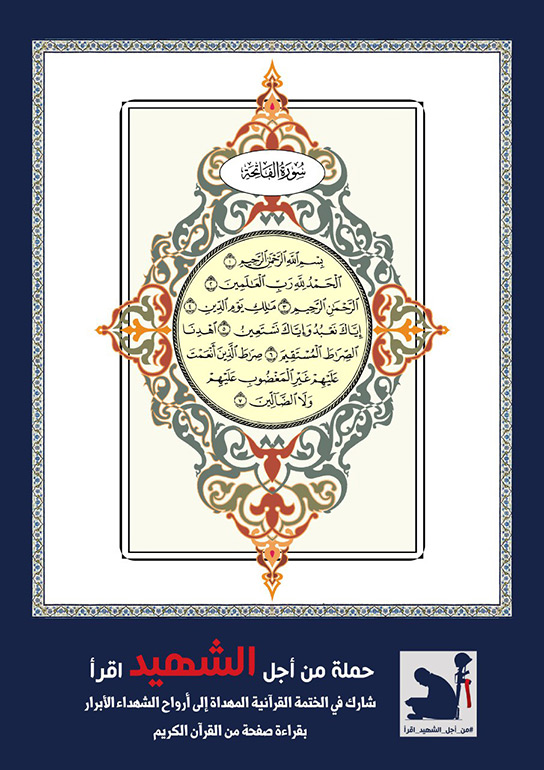 سُورَةُ الفَاتِحَةِ
بِسْمِ اللَّهِ الرَّحْمَٰنِ الرَّحِيمِ ١
الْحَمْدُ لِلَّهِ رَبِّ الْعَالَمِينَ ٢
الرَّحْمَٰنِ الرَّحِيمِ ٣ مَالِكِ يَوْمِ الدِّينِ ٤
إِيَّاكَ نَعْبُدُ وَإِيَّاكَ نَسْتَعِينُ ٥ اهْدِنَا
الصِّرَاطَ الْمُسْتَقِيمَ ٦ صِرَاطَ الَّذِينَ أَنْعَمْتَ
عَلَيْهِمْ غَيْرِ الْمَغْضُوبِ عَلَيْهِمْ
وَلَا الضَّالِّينَ ٧
حملة من أجل الشهيد اقرأ
شارك في الختمة القرآنية المهداة إلى أرواح الشهداء الأبرار
بقراءة صفحة من القرآن الكريم
#من_أجل_الشهيد_اقرأ